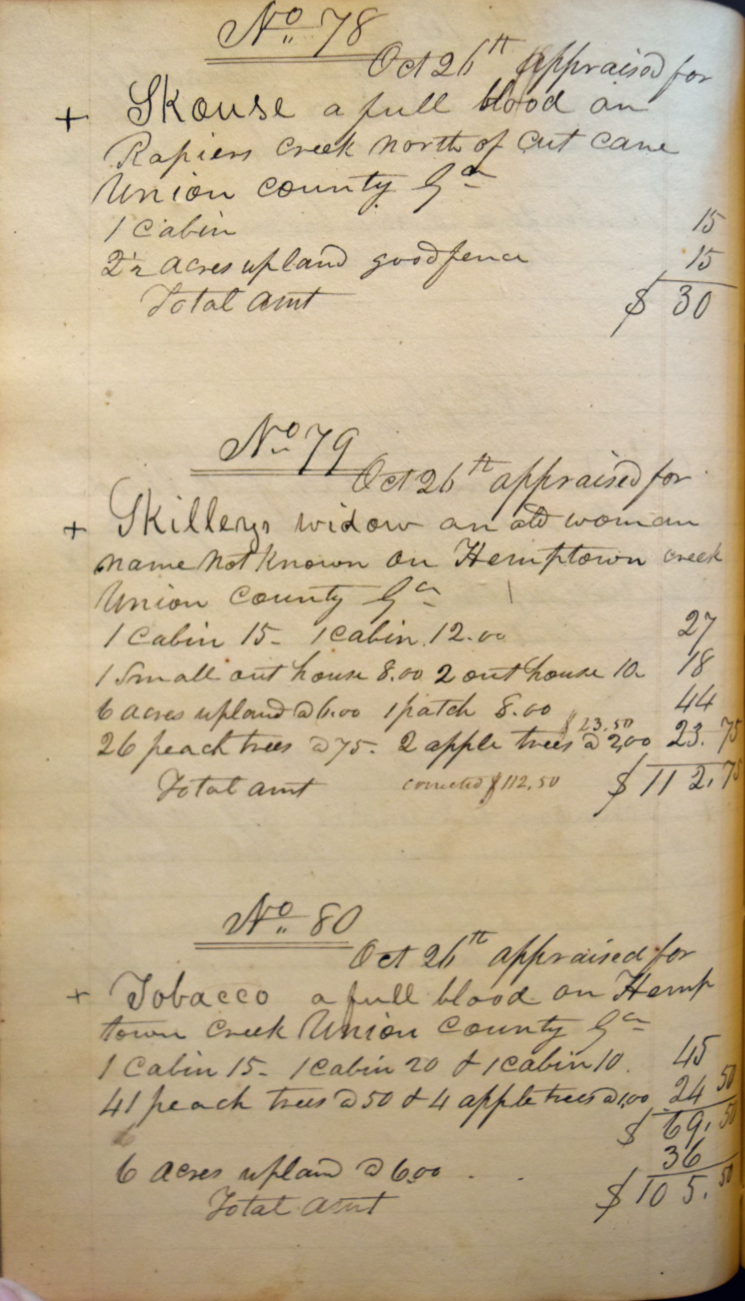 No 78
Oct 26th appraised for
+ Skouse a full blood on
Rapiers creek north of Cut cane
Union county Ga
1 Cabin 15
2½ acres upland good fence 15
Total amt $ 30
No 79
Oct 26th appraised for
+ Skillerys widow an old woman
name not known on Hemptown creek
Union county Ga
1 Cabin 15- 1 cabin 12.00 27
1 Small out house 8.00 2 out house 10 18
6 acres upland @ 6.00 1 patch 8.00 44
$23.50
26 peach trees @ 75- 2 apple trees @ 2,00 23.75
Total amt corrected $112.50 $ 112.75
No 80
Oct 26th appraised for
+ Tobacco a full blood on Hemp
town creek Union county Ga
1 Cabin 15- 1 cabin 20 & 1 cabin 10. 45
41 peach trees @ 50 & 4 apple trees @ 1,00 24 50
$ 69.50
6 acres upland @ 6.00 . . 36
Total amt $ 105.50